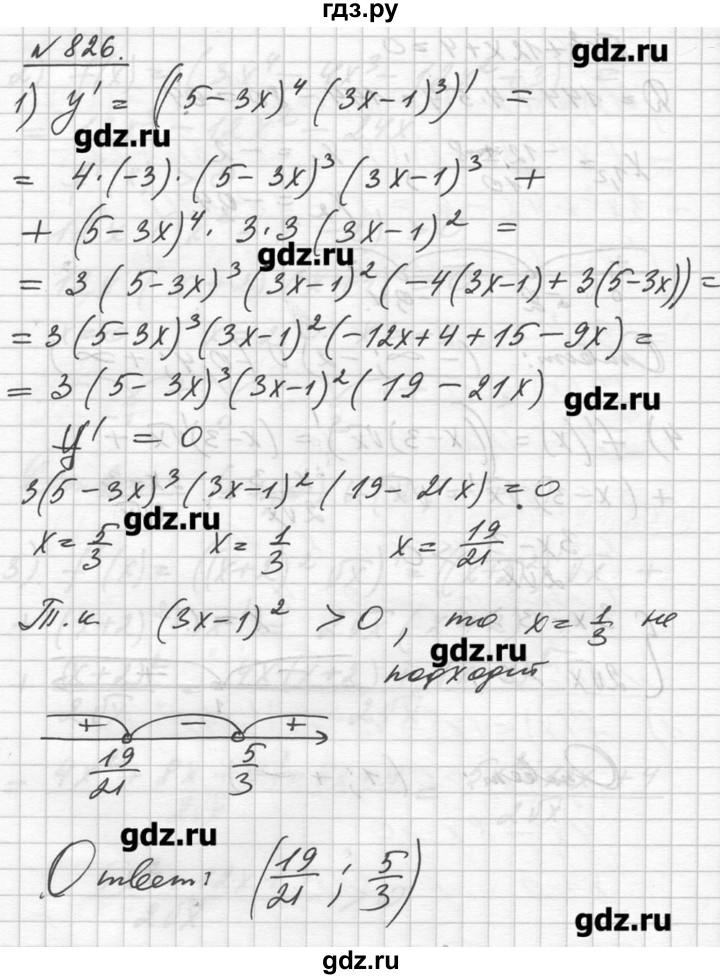 гдз.ру
№ 826.
gdz.ru
1) y' = ((5-3x)⁴(3x-1)³)' =
gdz.ru
= 4·(-3)·(5-3x)³(3x-1)³ +
+ (5-3x)⁴·3·3(3x-1)² =
gdz.ru
= 3(5-3x)³(3x-1)²(-4(3x-1)+3(5-3x)) =
= 3(5-3x)³(3x-1)²(-12x+4+15-9x) =
= 3(5-3x)³(3x-1)²(19-21x)
gdz.ru
y' = 0
3(5-3x)³(3x-1)²(19-21x) = 0
gdz.ru
x = 5/3 x = 1/3 x = 19/21
Т.к (3x-1)² > 0, то x = 1/3 не
gdz.ru
подходит
+ - +
19/21 5/3
gdz.ru
Ответ: (19/21; 5/3)
gdz.ru
гдз.ру